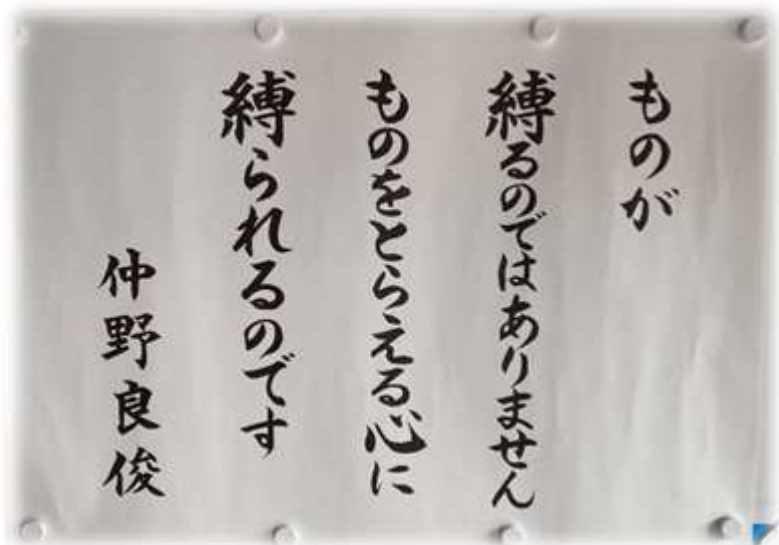 ものが
縛るのではありません
ものをとらえる心に
縛られるのです
仲野良俊